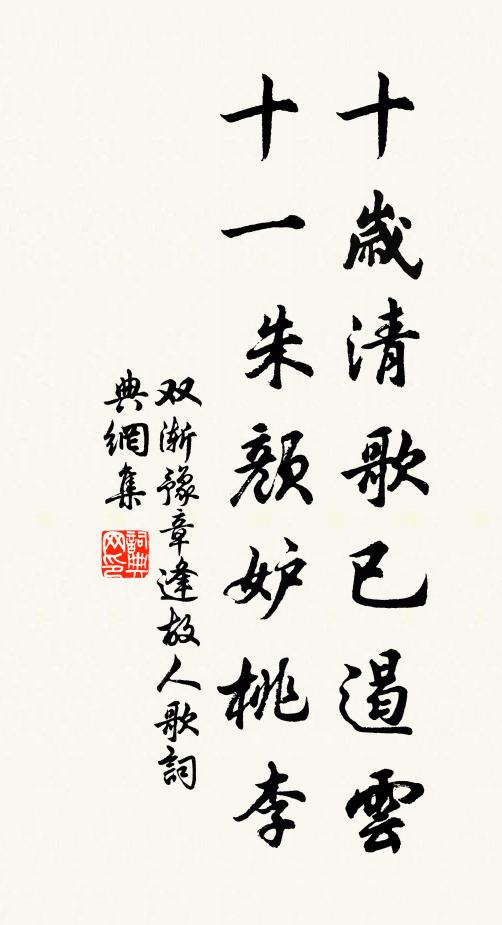 十歲清歌已遏雲
十一朱顏妒桃李
双漸豫章逢故人歌詞
典網集
詞典
网印